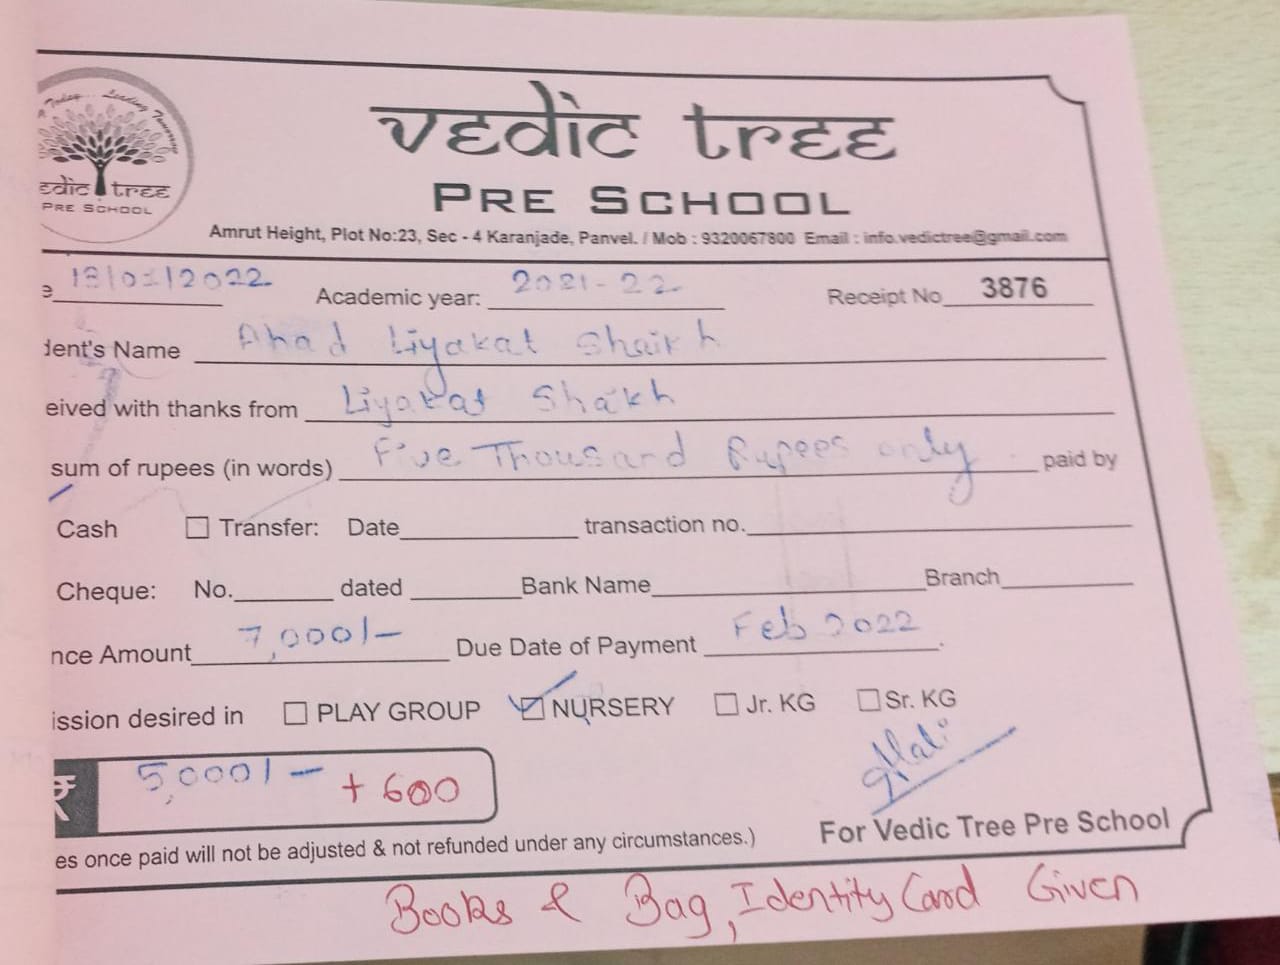 A Today... Leading Tomorrow
edic tree
PRE SCHOOL
vedic tree
PRE SCHOOL
Amrut Height, Plot No:23, Sec - 4 Karanjade, Panvel. / Mob : 9320067800 Email : info.vedictree@gmail.com
e 13/01/2022 Academic year: 2021-22 Receipt No 3876
dent's Name Ahad Liyakat Shaikh
eived with thanks from Liyakat Shakh
sum of rupees (in words) Five Thousand Rupees only paid by
Cash Transfer: Date transaction no.
Cheque: No. dated Bank Name Branch
nce Amount 7,000/- Due Date of Payment Feb 2022
ission desired in PLAY GROUP NURSERY Jr. KG Sr. KG
₹ 5,000/- + 600
es once paid will not be adjusted & not refunded under any circumstances.) For Vedic Tree Pre School
Books & Bag, Identity Card Given